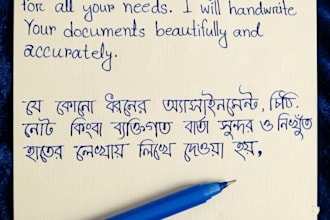 for all your needs. I will handwrite
Your documents beautifully and
accurately.
যে কোনো ধরনের অ্যাসাইনমেন্ট, চিঠি,
নোট কিংবা ব্যক্তিগত বার্তা সুন্দর ও নিখুঁত
হাতের লেখায় লিখে দেওয়া হয়,